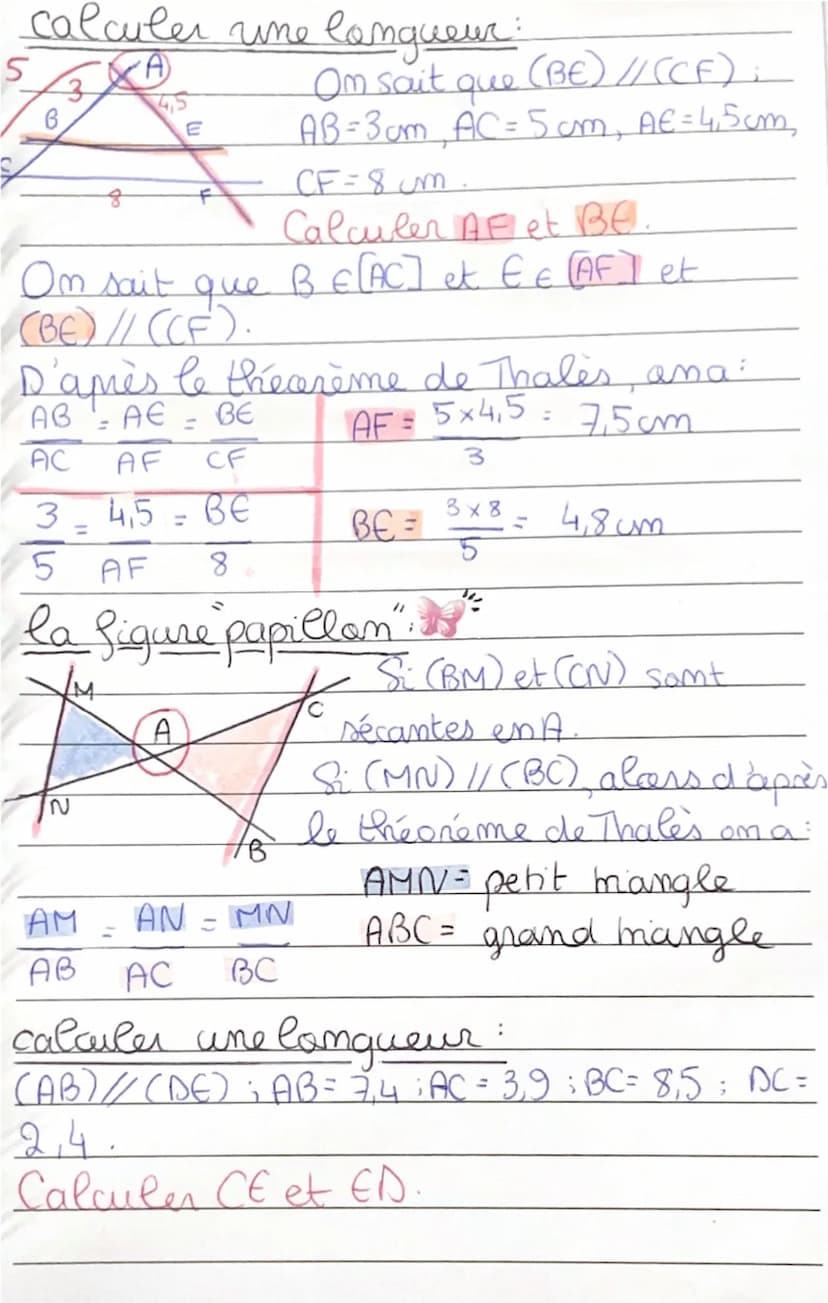 Calculer une longueur :
5
3
A
4,5
B
E
C
8
F
On sait que (BE) // (CF) ;
AB = 3 cm, AC = 5 cm, AE = 4,5 cm,
CF = 8 cm.
Calculer AF et BE.
On sait que B ∈ [AC] et E ∈ [AF] et
(BE) // (CF).
D'après le théorème de Thalès, on a :
AB/AC = AE/AF = BE/CF
AF = 5 × 4,5 / 3 = 7,5 cm
3/5 = 4,5/AF = BE/8
BE = 3 × 8 / 5 = 4,8 cm
la figure "papillon" :
M
A
C
N
B
Si (BM) et (CN) sont
sécantes en A.
Si (MN) // (BC), alors d'après
le théorème de Thalès on a :
AMN = petit triangle
ABC = grand triangle
AM/AB = AN/AC = MN/BC
calculer une longueur :
(AB) // (DE) ; AB = 7,4 ; AC = 3,9 ; BC = 8,5 ; DC =
2,4.
Calculer CE et ED.